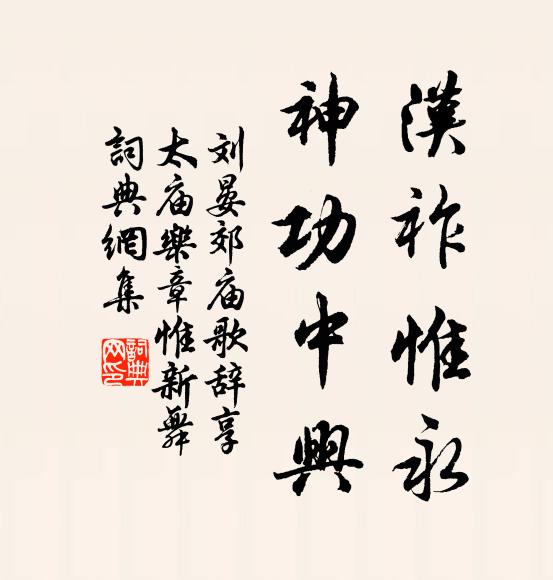 漢祚惟永
神功中興
刘晏郊庙歌辞享
太庙樂章惟新舞
詞典網集
詞典網印